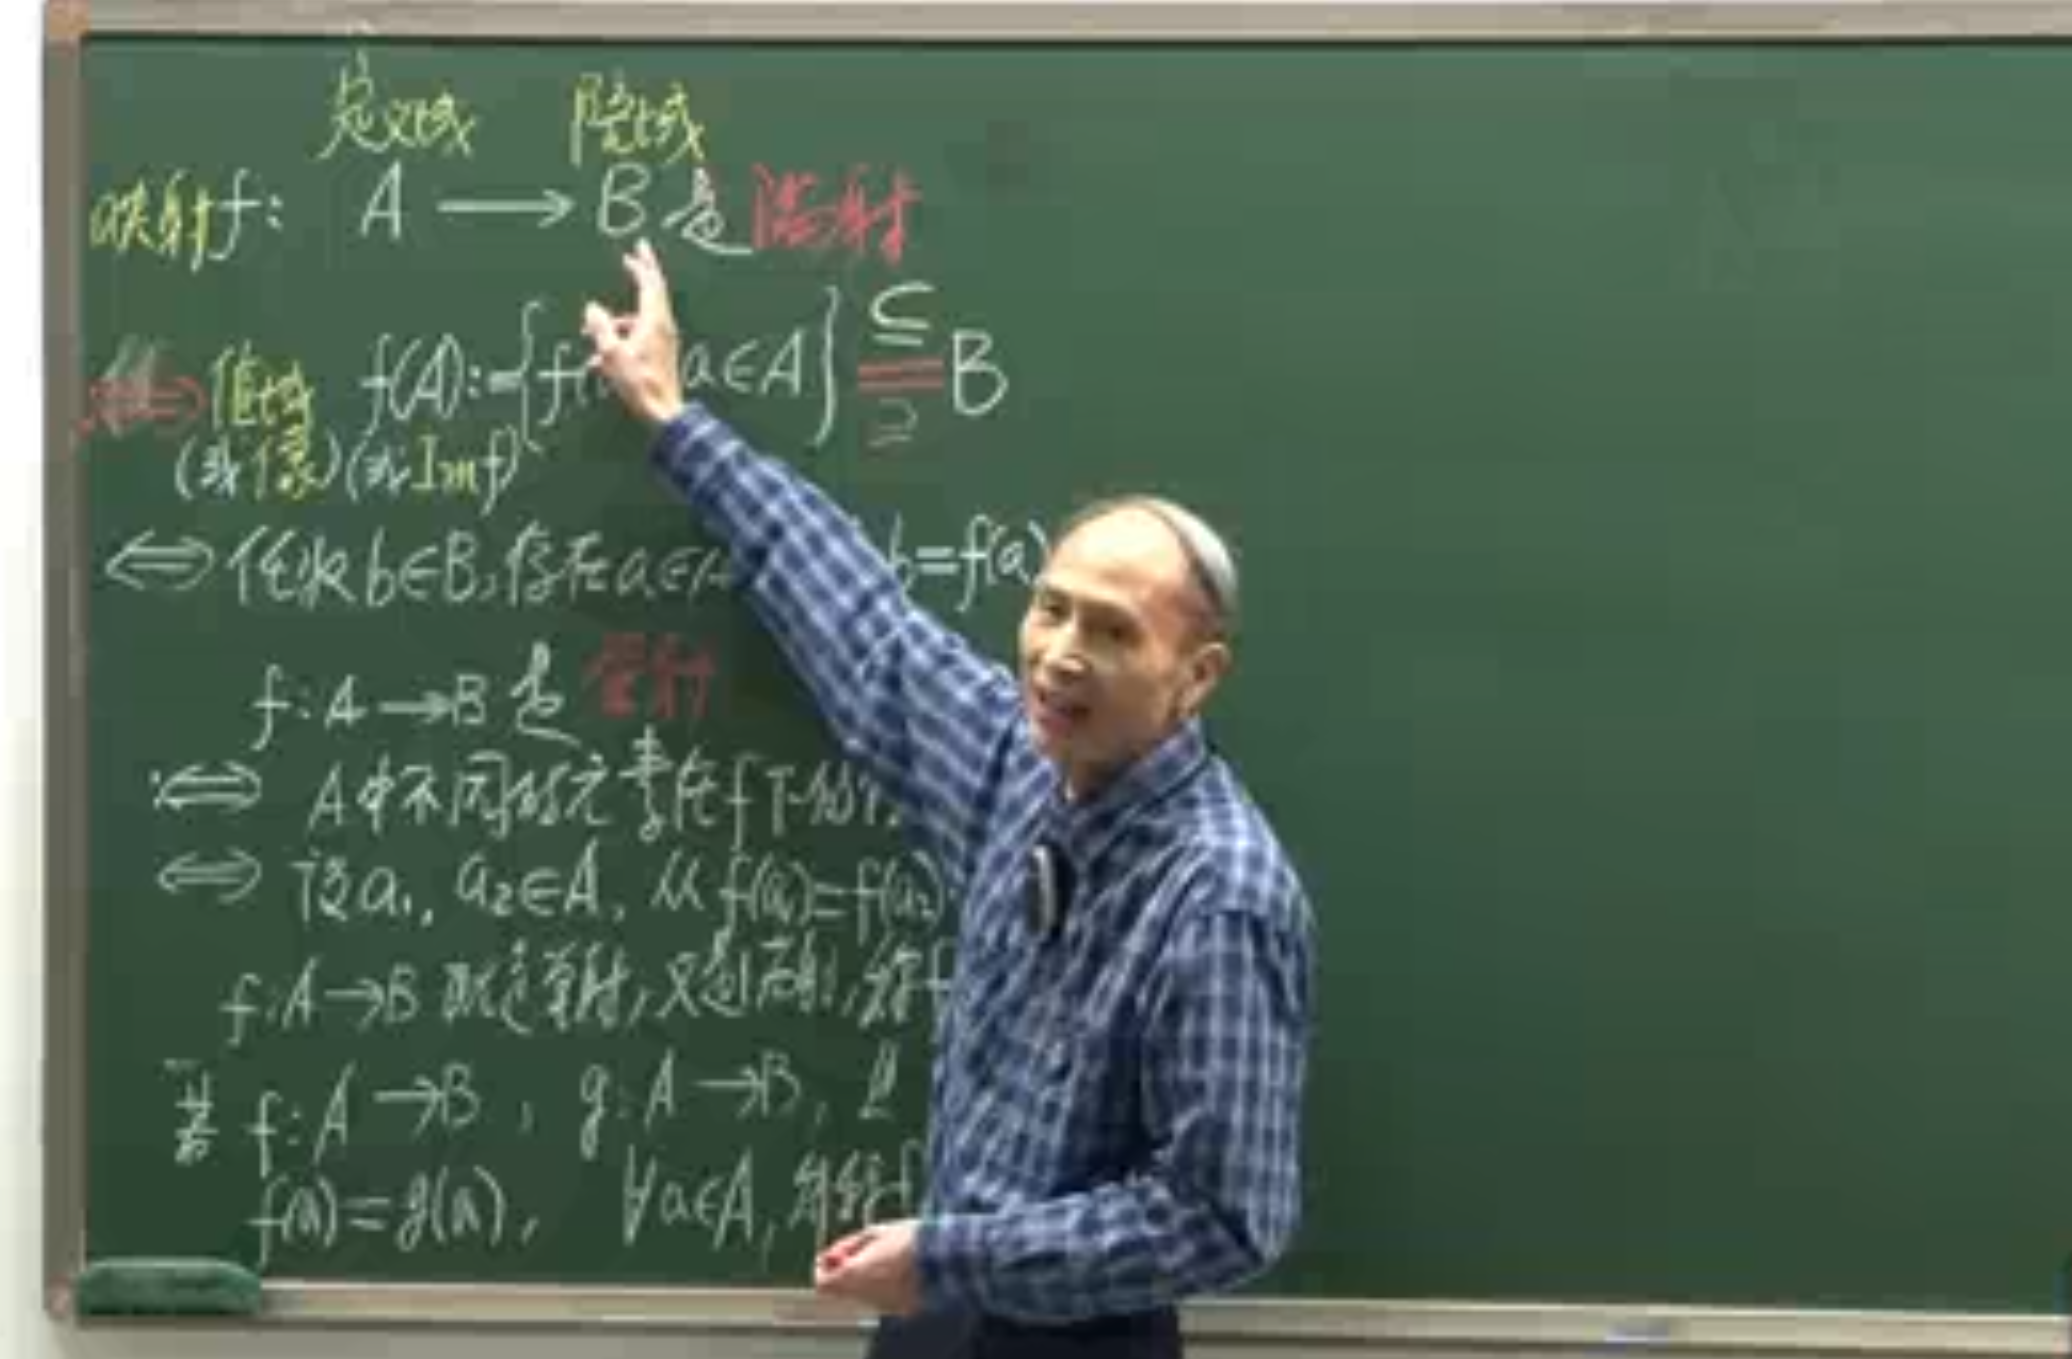 定义域 陪域
映射f: A ⟶ B 是 满射
⟺ 值域 f(A):={f( a∈A} ⊆ = ⊇ B
(或像)(或Imf)
⟺ 任取b∈B,存在a∈A b=f(a)
f:A→B是 单射
:⟺ A中不同的元素在f下的
⟺ 设a₁, a₂∈A, 从f(a₁)=f(a₂)
f:A→B 既是单射,又是满射,称f
若 f:A→B, g:A→B, 且
f(a)=g(a), ∀a∈A, 称f